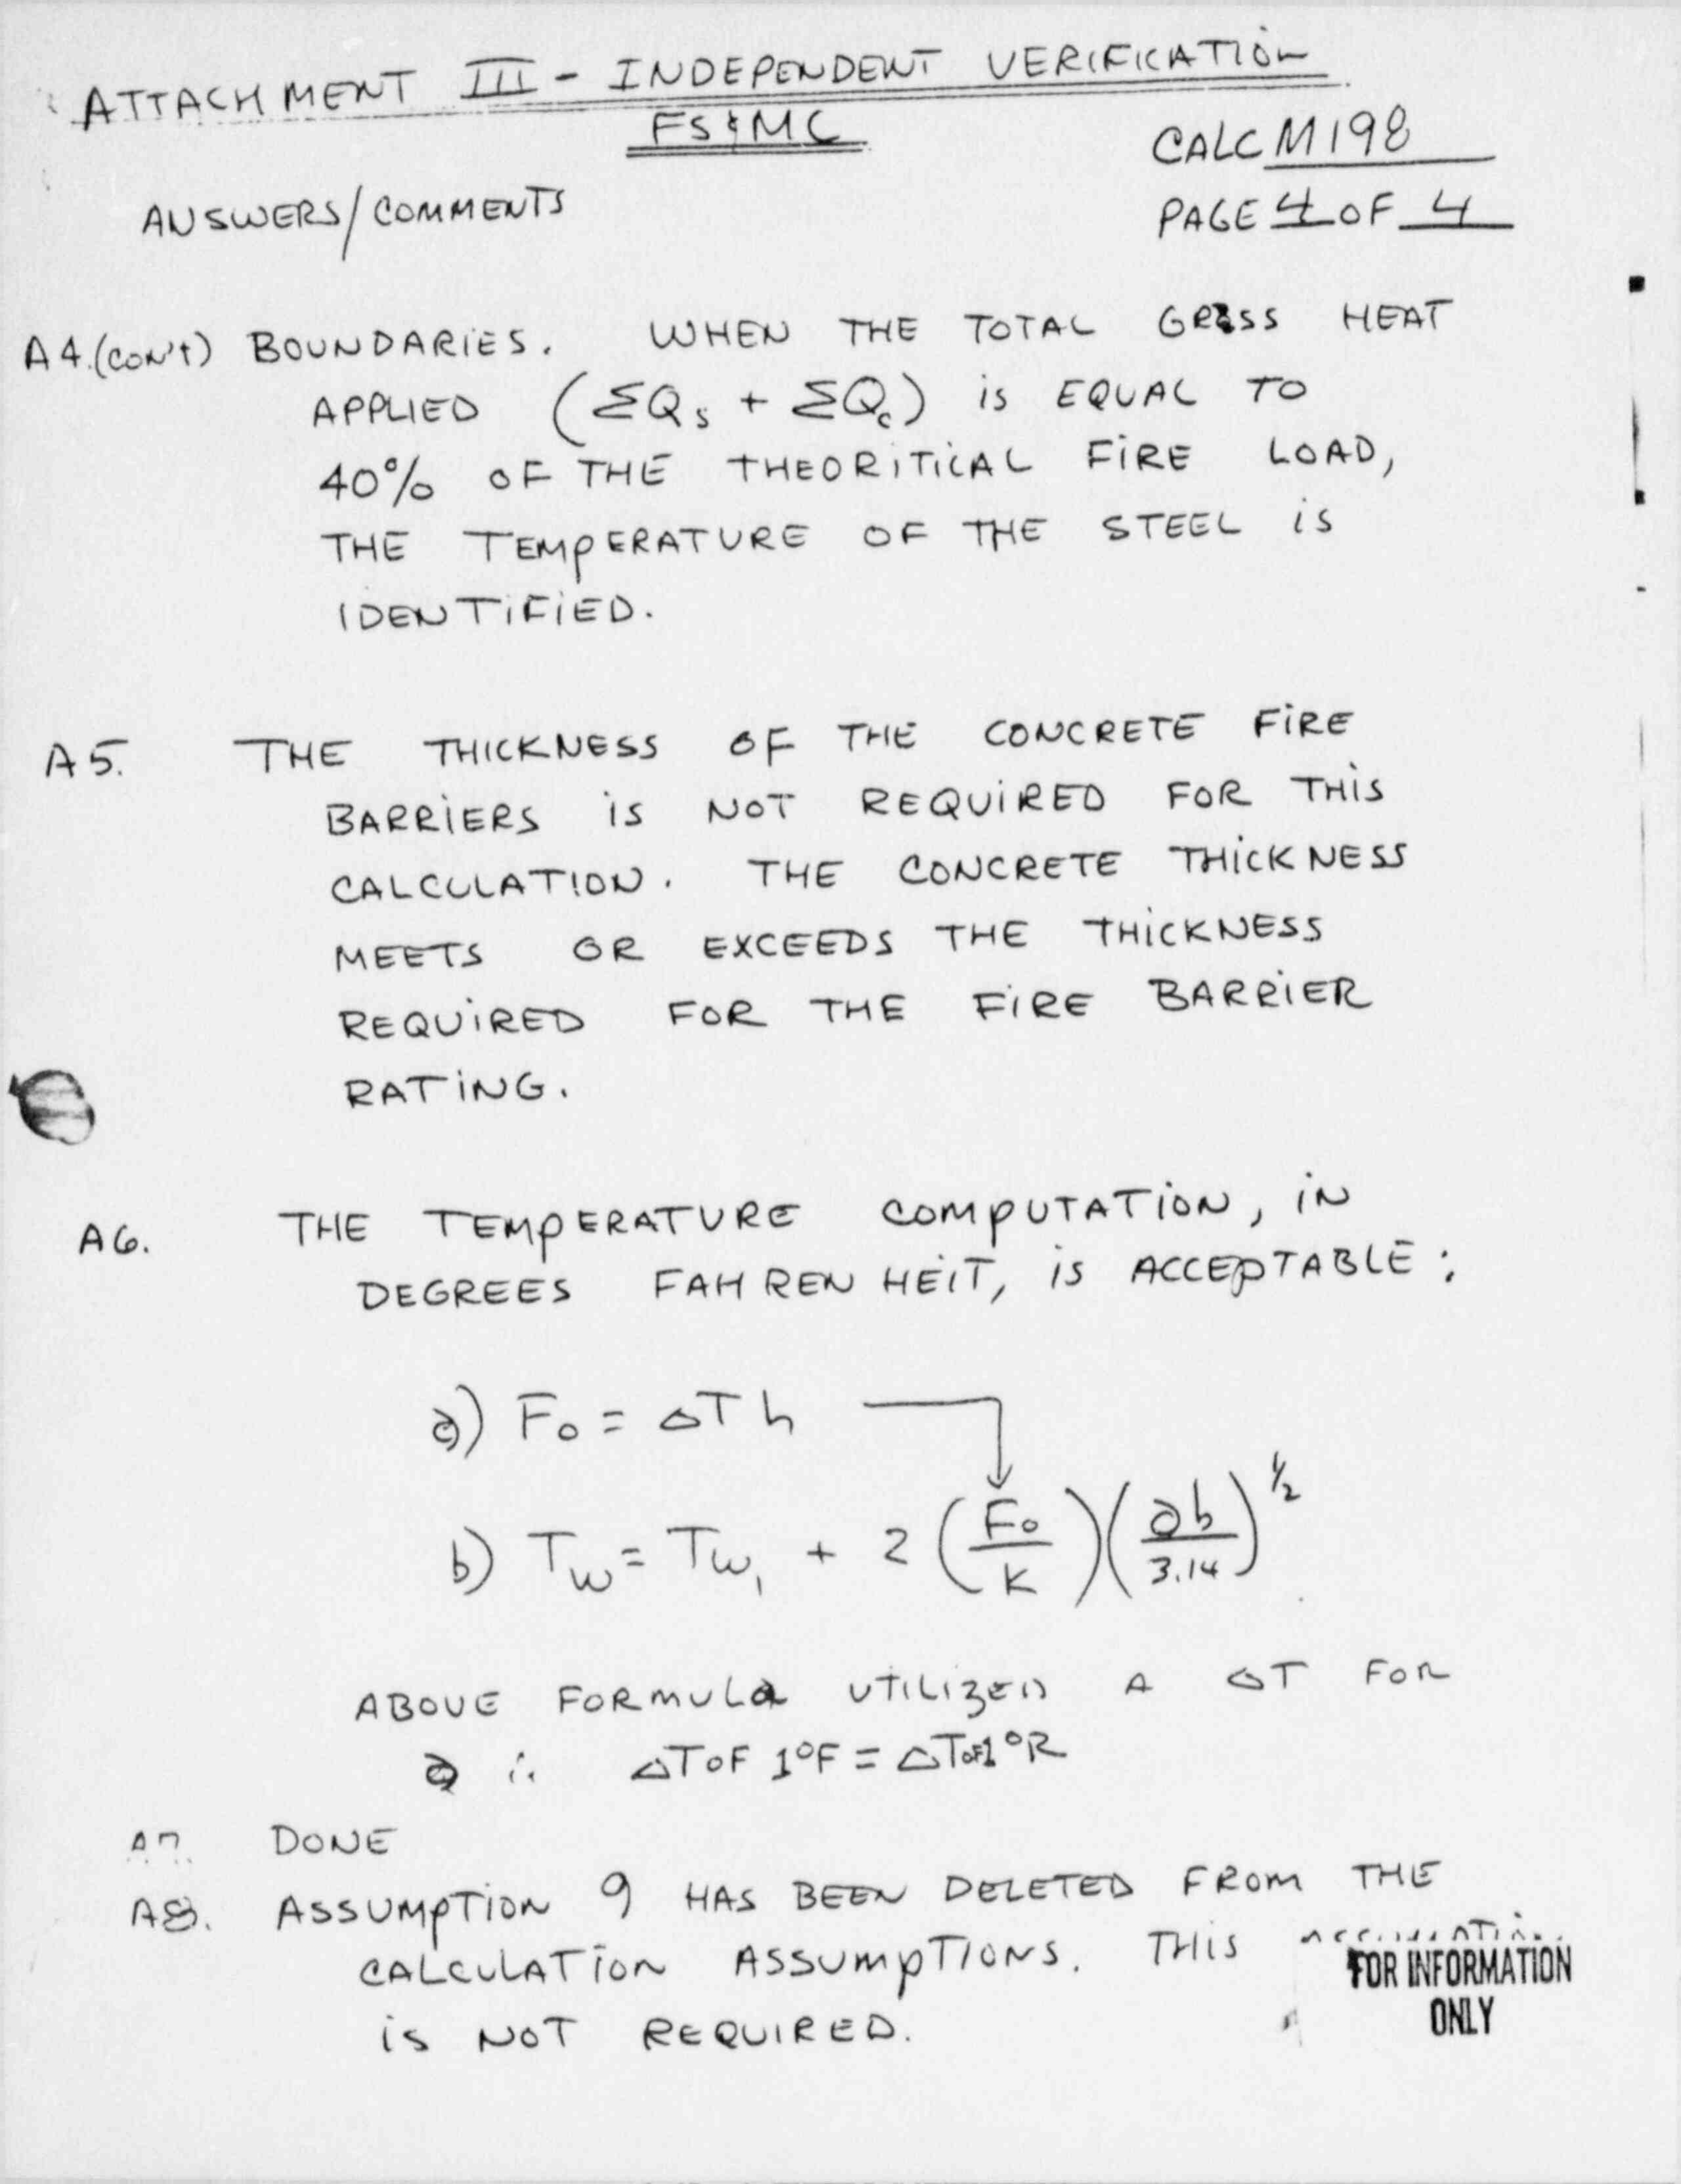 ATTACHMENT III - INDEPENDENT VERIFICATION
FS&MC
CALC M198
ANSWERS/COMMENTS
PAGE 4 OF 4
A4.(CON'T) BOUNDARIES. WHEN THE TOTAL GROSS HEAT
APPLIED (ΣQs + ΣQc) is EQUAL TO
40% OF THE THEORITICAL FIRE LOAD,
THE TEMPERATURE OF THE STEEL is
IDENTIFIED.
A5. THE THICKNESS OF THE CONCRETE FIRE
BARRIERS is NOT REQUIRED FOR THIS
CALCULATION. THE CONCRETE THICKNESS
MEETS OR EXCEEDS THE THICKNESS
REQUIRED FOR THE FIRE BARRIER
RATING.
A6. THE TEMPERATURE COMPUTATION, iN
DEGREES FAHRENHEIT, is ACCEPTABLE:
a) Fo = ΔT h
b) Tw = Tw1 + 2 (Fo/K)(ab/3.14)^1/2
ABOVE FORMULA UTILIZED A ΔT FOR
a ∴ ΔT OF 1°F = ΔT OF 1°R
A7. DONE
A8. ASSUMPTION 9 HAS BEEN DELETED FROM THE
CALCULATION ASSUMPTIONS. THIS
is NOT REQUIRED.
FOR INFORMATION
ONLY